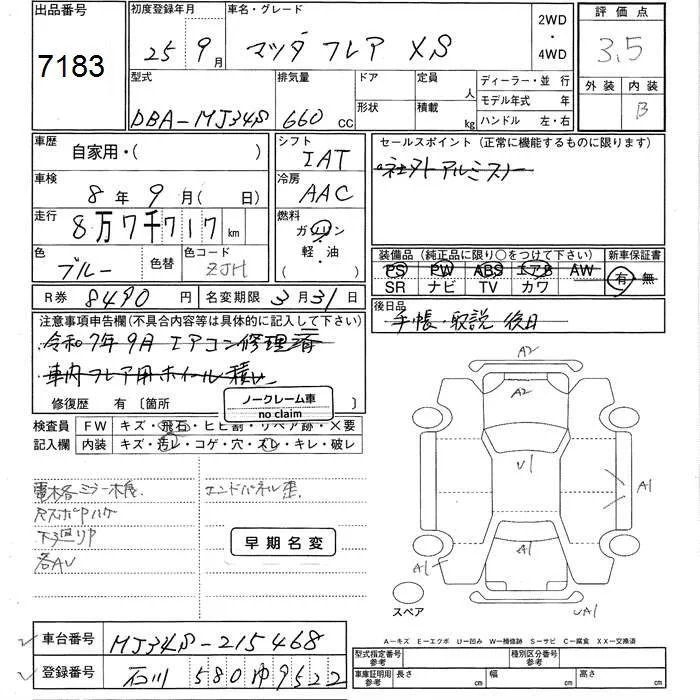 出品番号
7183
初度登録年月
25 9月
車名・グレード
マツダ フレア XS
2WD
・
4WD
評価点
3.5
外装 内装
B
型式
DBA-MJ34S
排気量
660 CC
ドア
形状
定員 人
積載 kg
ディーラー・並行
モデル年式 年
ハンドル 左・右
車歴
自家用・( )
シフト
IAT
セールスポイント (正常に機能するものに限ります)
社外アルミスノー
車検
8年 9月( 日)
冷房
AAC
走行
8万7千717km
燃料
ガソリン
・
軽・油
( )
色
ブルー
色替
色コード
ZJH
装備品 (純正品に限り○をつけて下さい)
PS PW ABS エアB AW
SR ナビ TV カワ
新車保証書
有・無
R券 8490円
名変期限 3月31日
後日品
手帳・取説 後日
注意事項申告欄(不具合内容等は具体的に記入して下さい)
令和7年9月 エアコン修理済
車内フレア用ホイール積い
修復歴 有〔箇所
ノークレーム車
no claim
検査員
記入欄
FW キズ・飛石・ヒビ割・リペア跡・X要
内装 キズ・汚レ・コゲ・穴・スレ・キレ・破レ
電格ミラー不良
エンドパネル歪
下廻りサ
各AU
早期名変
A2
A2
U1
A1
A1
A1
UA1
スペア
A-キズ E-エクボ U-凹み W-補修跡 S-サビ C-腐食 XX-交換済
車台番号 MJ34S-215468
登録番号 石川 580 ゆ 9522
型式指定番号
参考
種別区分番号
参考
車庫証明用
参考
長さ cm
幅 cm
高さ cm